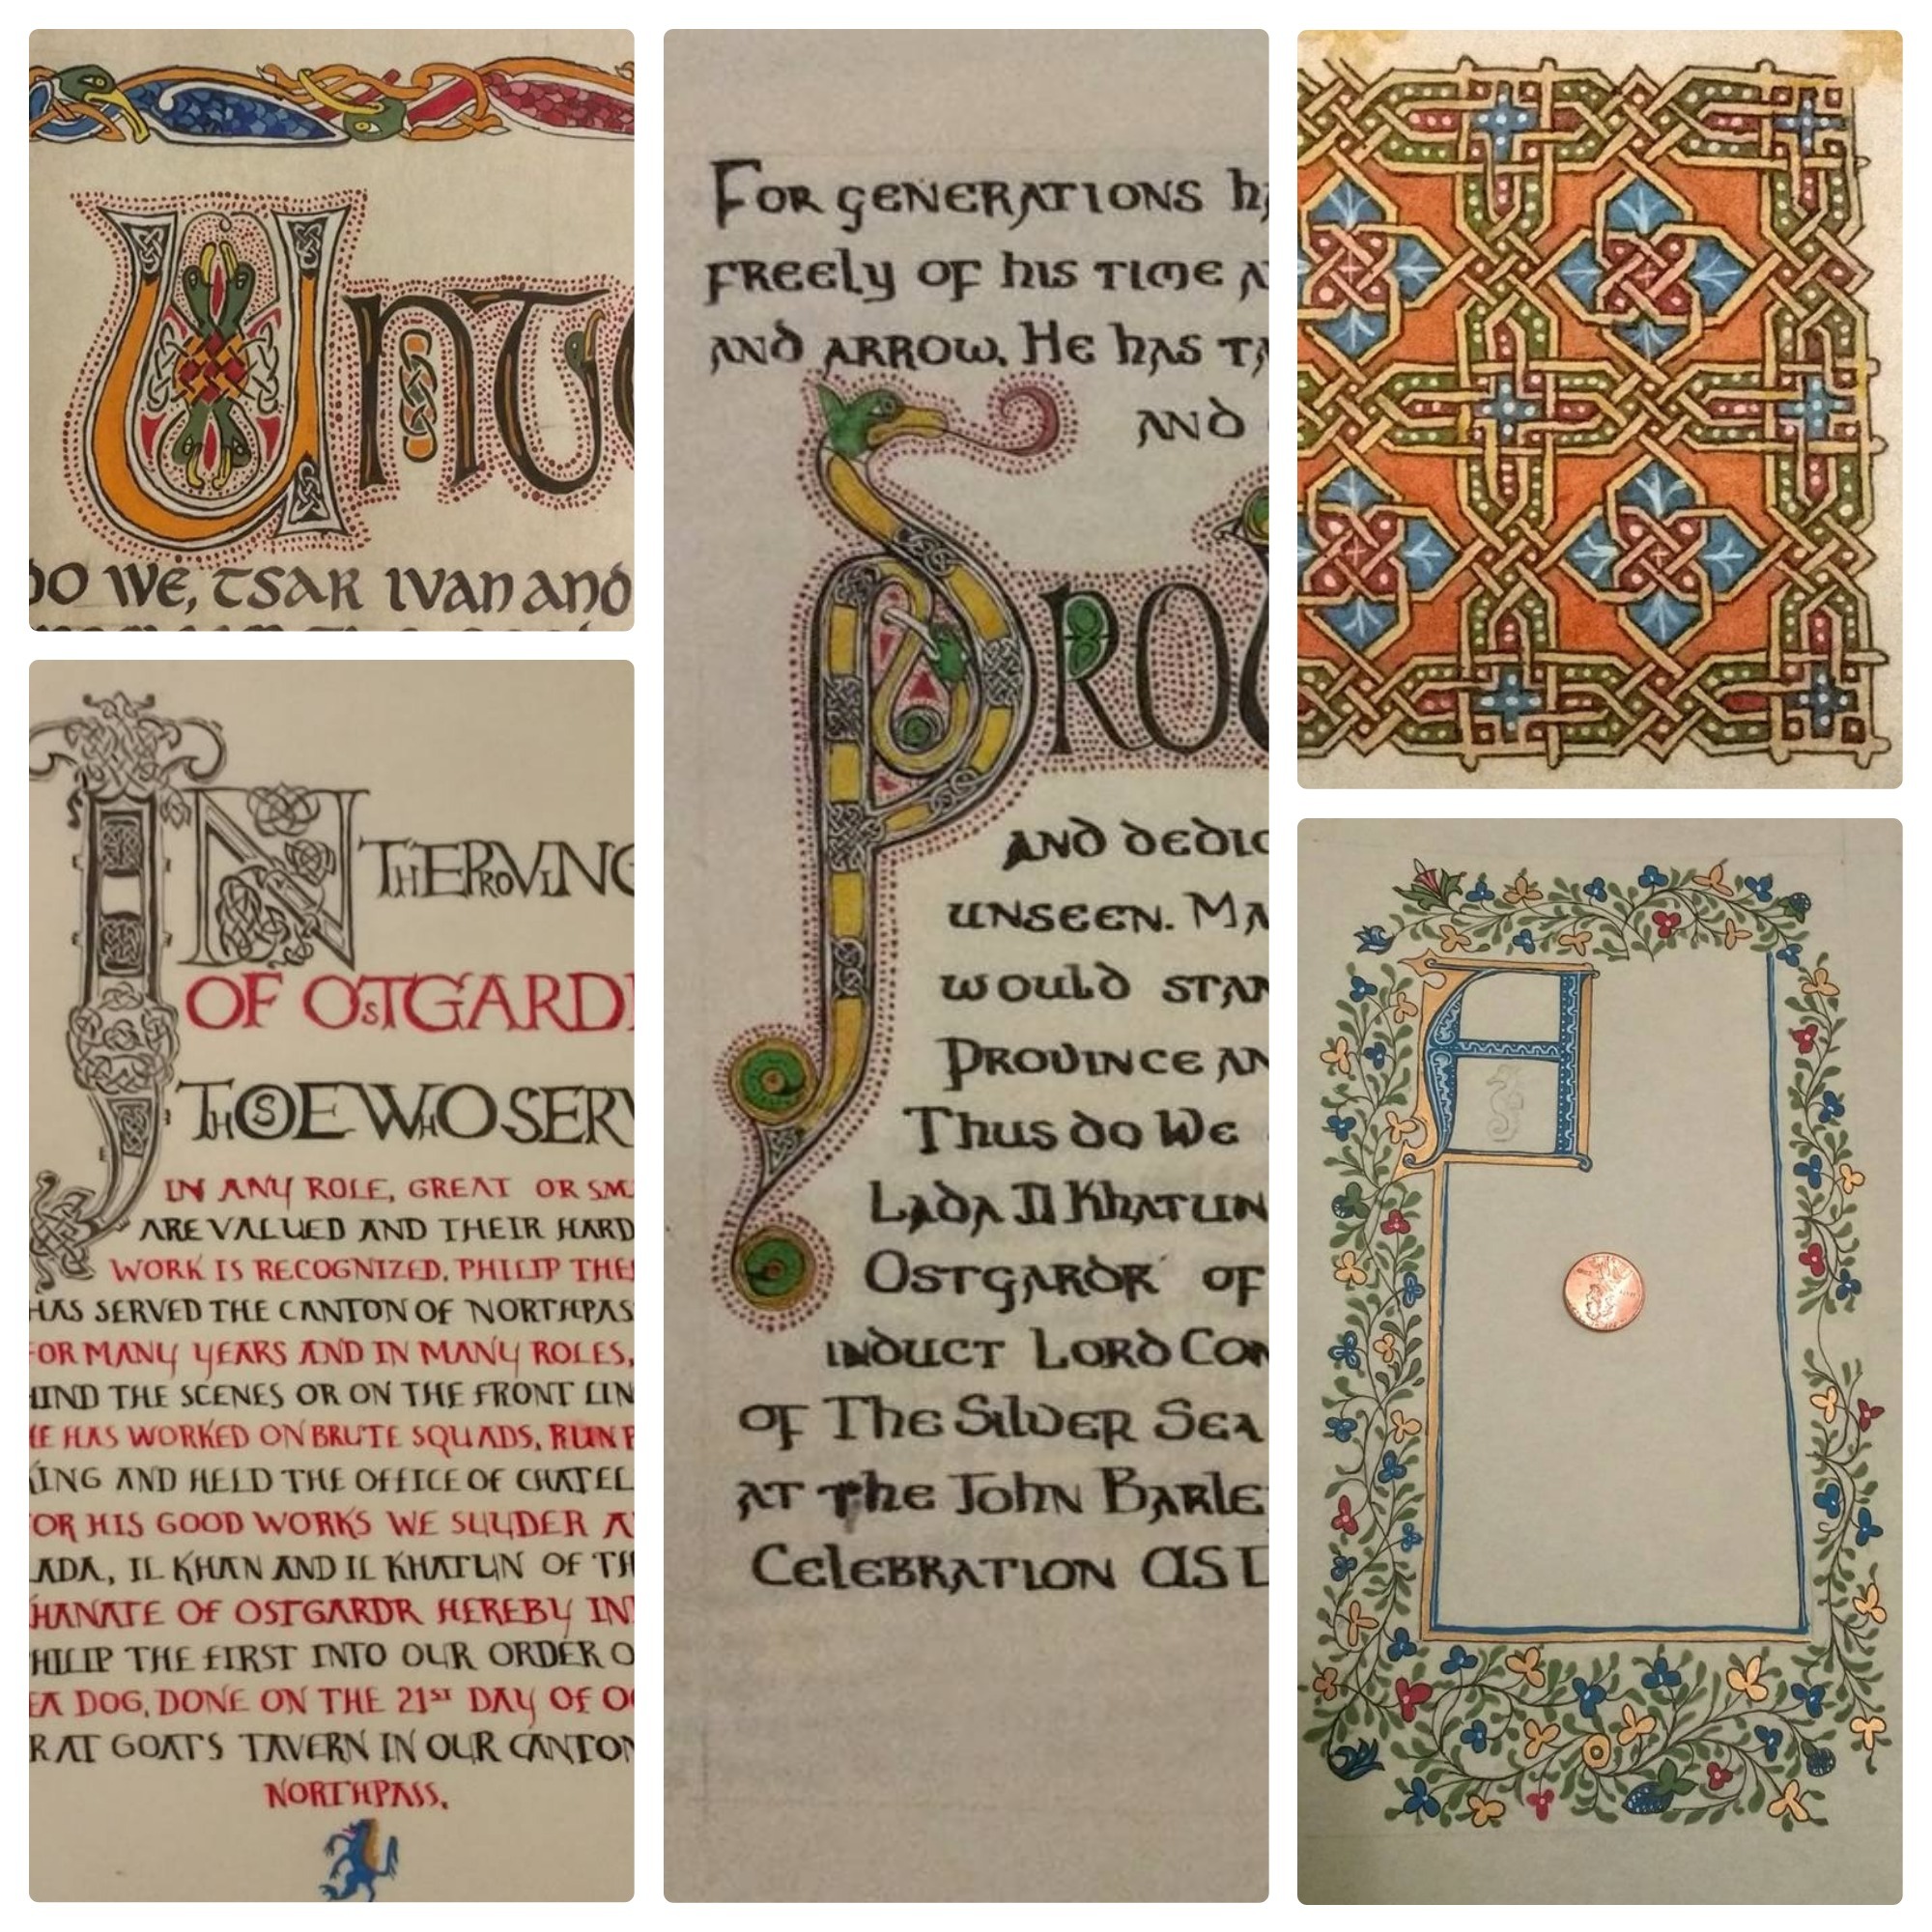 Unto
do We, Tsar Ivan and
IN THE PROVINC
OF OSTGARD
THOSE WHO SERV
IN ANY ROLE, GREAT OR SM
ARE VALUED AND THEIR HARD
WORK IS RECOGNIZED. PHILIP THE
HAS SERVED THE CANTON OF NORTHPAS
FOR MANY YEARS AND IN MANY ROLES,
HIND THE SCENES OR ON THE FRONT LIN
HE HAS WORKED ON BRUTE SQUADS, RUN
KING AND HELD THE OFFICE OF CHATEL
FOR HIS GOOD WORKS WE SUUDER A
LADA, IL KHAN AND IL KHATUN OF TH
KHANATE OF OSTGARDR HEREBY IN
PHILIP THE FIRST INTO OUR ORDER O
EA DOG, DONE ON THE 21ST DAY OF O
R AT GOATS TAVERN IN OUR CANTON
NORTHPASS.
For generations h
freely of his time a
and arrow. He has ta
and
Pro
and dedic
unseen. Ma
would stan
Province an
Thus do We
Lada Il Khatun
Ostgardr of
induct Lord Con
of The Silver Sea
at the John Barle
Celebration AS L
A